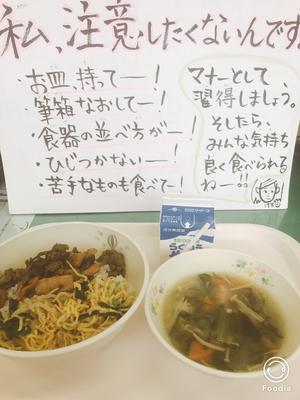 私、注意したくないんです
・お皿、持ってー!
・筆箱なおしてー!
・食器の並べ方がー!
・ひじつかないー!
・苦手なものも食べて!
マナーとして
習得しましょう。
そしたら、
みんな気持ち
良く食べられる
ねー!!
Foodie